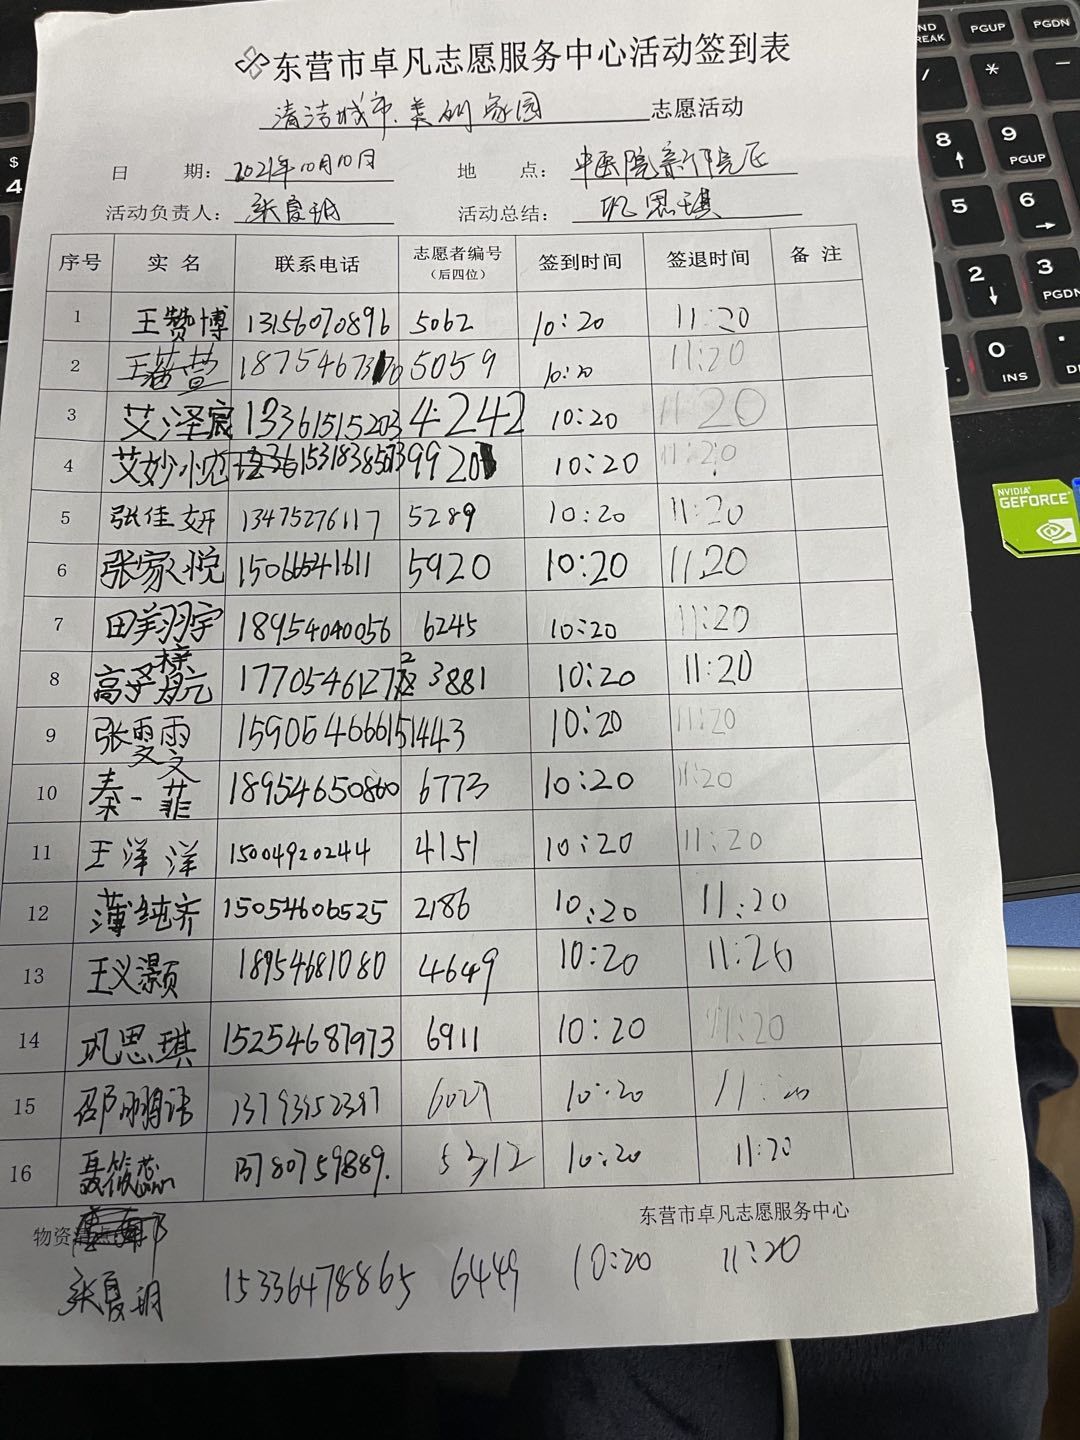 东营市卓凡志愿服务中心活动签到表
清洁城市、美丽家园 志愿活动
日 期: 2021年10月10日 地 点: 中医院新院区
活动负责人: 张夏玥 活动总结: 巩思琪
序号 实 名 联系电话 志愿者编号(后四位) 签到时间 签退时间 备 注
1 王赞博 13156070896 5062 10:20 11:20
2 5059 10:20 11:20
3 艾泽宸 13361515203 4242 10:20 11:20
4 艾妙 9920 10:20 11:20
5 张佳妍 13475276117 5289 10:20 11:20
6 张家悦 15066541611 5920 10:20 11:20
7 田翔宇 18954040056 6245 10:20 11:20
8 高梓航 3881 10:20 11:20
9 张雯雯 15905466615 1443 10:20 11:20
10 秦一菲 18954650860 6773 10:20 11:20
11 王洋洋 15004920244 4151 10:20 11:20
12 薄纯齐 15054606525 2186 10:20 11:20
13 王义灏 18954681080 4649 10:20 11:20
14 巩思琪 15254687973 6911 10:20 11:20
15 邵鹏 13793152397 10:20 11:20
16 聂筱蕊 13780759889. 5312 10:20 11:20
物资 东营市卓凡志愿服务中心
张夏玥 15336478865 6449 10:20 11:20
PGUP
PGDN
/
*
-
$
4
8
9
PGUP
5
6
2
3
PGDN
0
INS
DEL
NVIDIA
GEFORCE